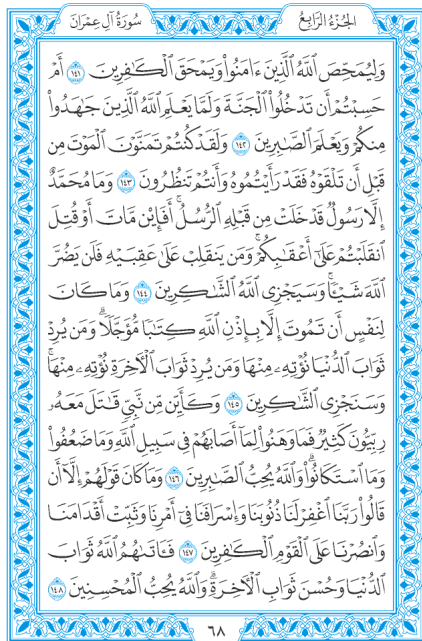 الجُزءُ الرَّابِعُ
سُورَةُ آلِ عِمْرَانَ
وَلِيُمَحِّصَ ٱللَّهُ ٱلَّذِينَ ءَامَنُوا۟ وَيَمْحَقَ ٱلْكَٰفِرِينَ ١٤١ أَمْ
حَسِبْتُمْ أَن تَدْخُلُوا۟ ٱلْجَنَّةَ وَلَمَّا يَعْلَمِ ٱللَّهُ ٱلَّذِينَ جَٰهَدُوا۟
مِنكُمْ وَيَعْلَمَ ٱلصَّٰبِرِينَ ١٤٢ وَلَقَدْ كُنتُمْ تَمَنَّوْنَ ٱلْمَوْتَ مِن
قَبْلِ أَن تَلْقَوْهُ فَقَدْ رَأَيْتُمُوهُ وَأَنتُمْ تَنظُرُونَ ١٤٣ وَمَا مُحَمَّدٌ
إِلَّا رَسُولٌ قَدْ خَلَتْ مِن قَبْلِهِ ٱلرُّسُلُ ۚ أَفَإِي۟ن مَّاتَ أَوْ قُتِلَ
ٱنقَلَبْتُمْ عَلَىٰٓ أَعْقَٰبِكُمْ ۚ وَمَن يَنقَلِبْ عَلَىٰ عَقِبَيْهِ فَلَن يَضُرَّ
ٱللَّهَ شَيْـًٔا ۗ وَسَيَجْزِى ٱللَّهُ ٱلشَّٰكِرِينَ ١٤٤ وَمَا كَانَ
لِنَفْسٍ أَن تَمُوتَ إِلَّا بِإِذْنِ ٱللَّهِ كِتَٰبًا مُّؤَجَّلًا ۗ وَمَن يُرِدْ
ثَوَابَ ٱلدُّنْيَا نُؤْتِهِۦ مِنْهَا وَمَن يُرِدْ ثَوَابَ ٱلْءَاخِرَةِ نُؤْتِهِۦ مِنْهَا ۚ
وَسَنَجْزِى ٱلشَّٰكِرِينَ ١٤٥ وَكَأَيِّن مِّن نَّبِىٍّ قَٰتَلَ مَعَهُۥ
رِبِّيُّونَ كَثِيرٌ فَمَا وَهَنُوا۟ لِمَآ أَصَابَهُمْ فِى سَبِيلِ ٱللَّهِ وَمَا ضَعُفُوا۟
وَمَا ٱسْتَكَانُوا۟ ۗ وَٱللَّهُ يُحِبُّ ٱلصَّٰبِرِينَ ١٤٦ وَمَا كَانَ قَوْلَهُمْ إِلَّآ أَن
قَالُوا۟ رَبَّنَا ٱغْفِرْ لَنَا ذُنُوبَنَا وَإِسْرَافَنَا فِىٓ أَمْرِنَا وَثَبِّتْ أَقْدَامَنَا
وَٱنصُرْنَا عَلَى ٱلْقَوْمِ ٱلْكَٰفِرِينَ ١٤٧ فَـَٔاتَىٰهُمُ ٱللَّهُ ثَوَابَ
ٱلدُّنْيَا وَحُسْنَ ثَوَابِ ٱلْءَاخِرَةِ ۗ وَٱللَّهُ يُحِبُّ ٱلْمُحْسِنِينَ ١٤٨
٦٨